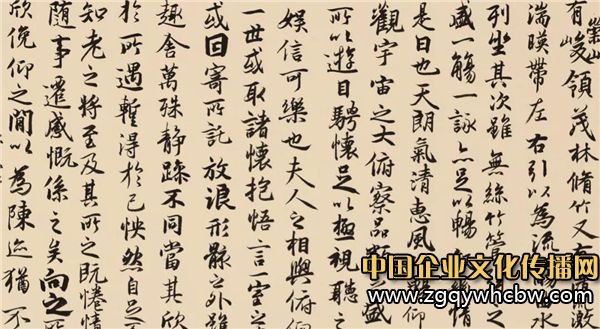 有崇山峻領茂林脩竹又有清流激
湍暎帶左右引以為流觴曲水
列坐其次雖無絲竹管弦
盛一觴一詠亦足以暢敘情
是日也天朗氣清惠風和暢仰
觀宇宙之大俯察品類之盛
所以遊目騁懷足以極視聽之
娛信可樂也夫人之相與俯仰
一世或取諸懷抱悟言一室之
或因寄所託放浪形骸之外雖
趣舍萬殊靜躁不同當其欣
於所遇暫得於己怏然自足不
知老之將至及其所之既惓情
隨事遷感慨係之矣向之所
欣俛仰之閒以為陳迹猶不
中国企业文化传播网
www.zgqywhcbw.com